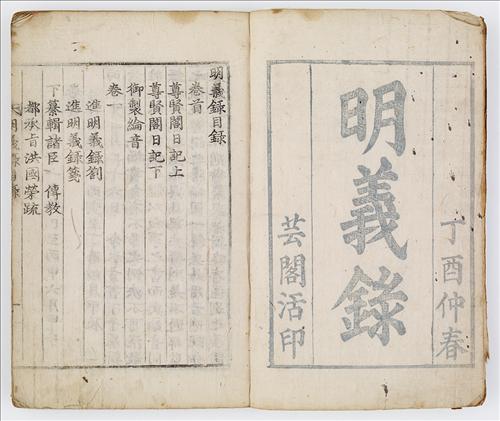 丁酉仲春
明義錄
芸閣活印
明義錄目錄
卷首
尊賢閣日記上
尊賢閣日記下
御製綸音
卷一
進明義錄劄
進明義錄箋
下纂輯諸臣 傳教
都承旨洪國榮疏